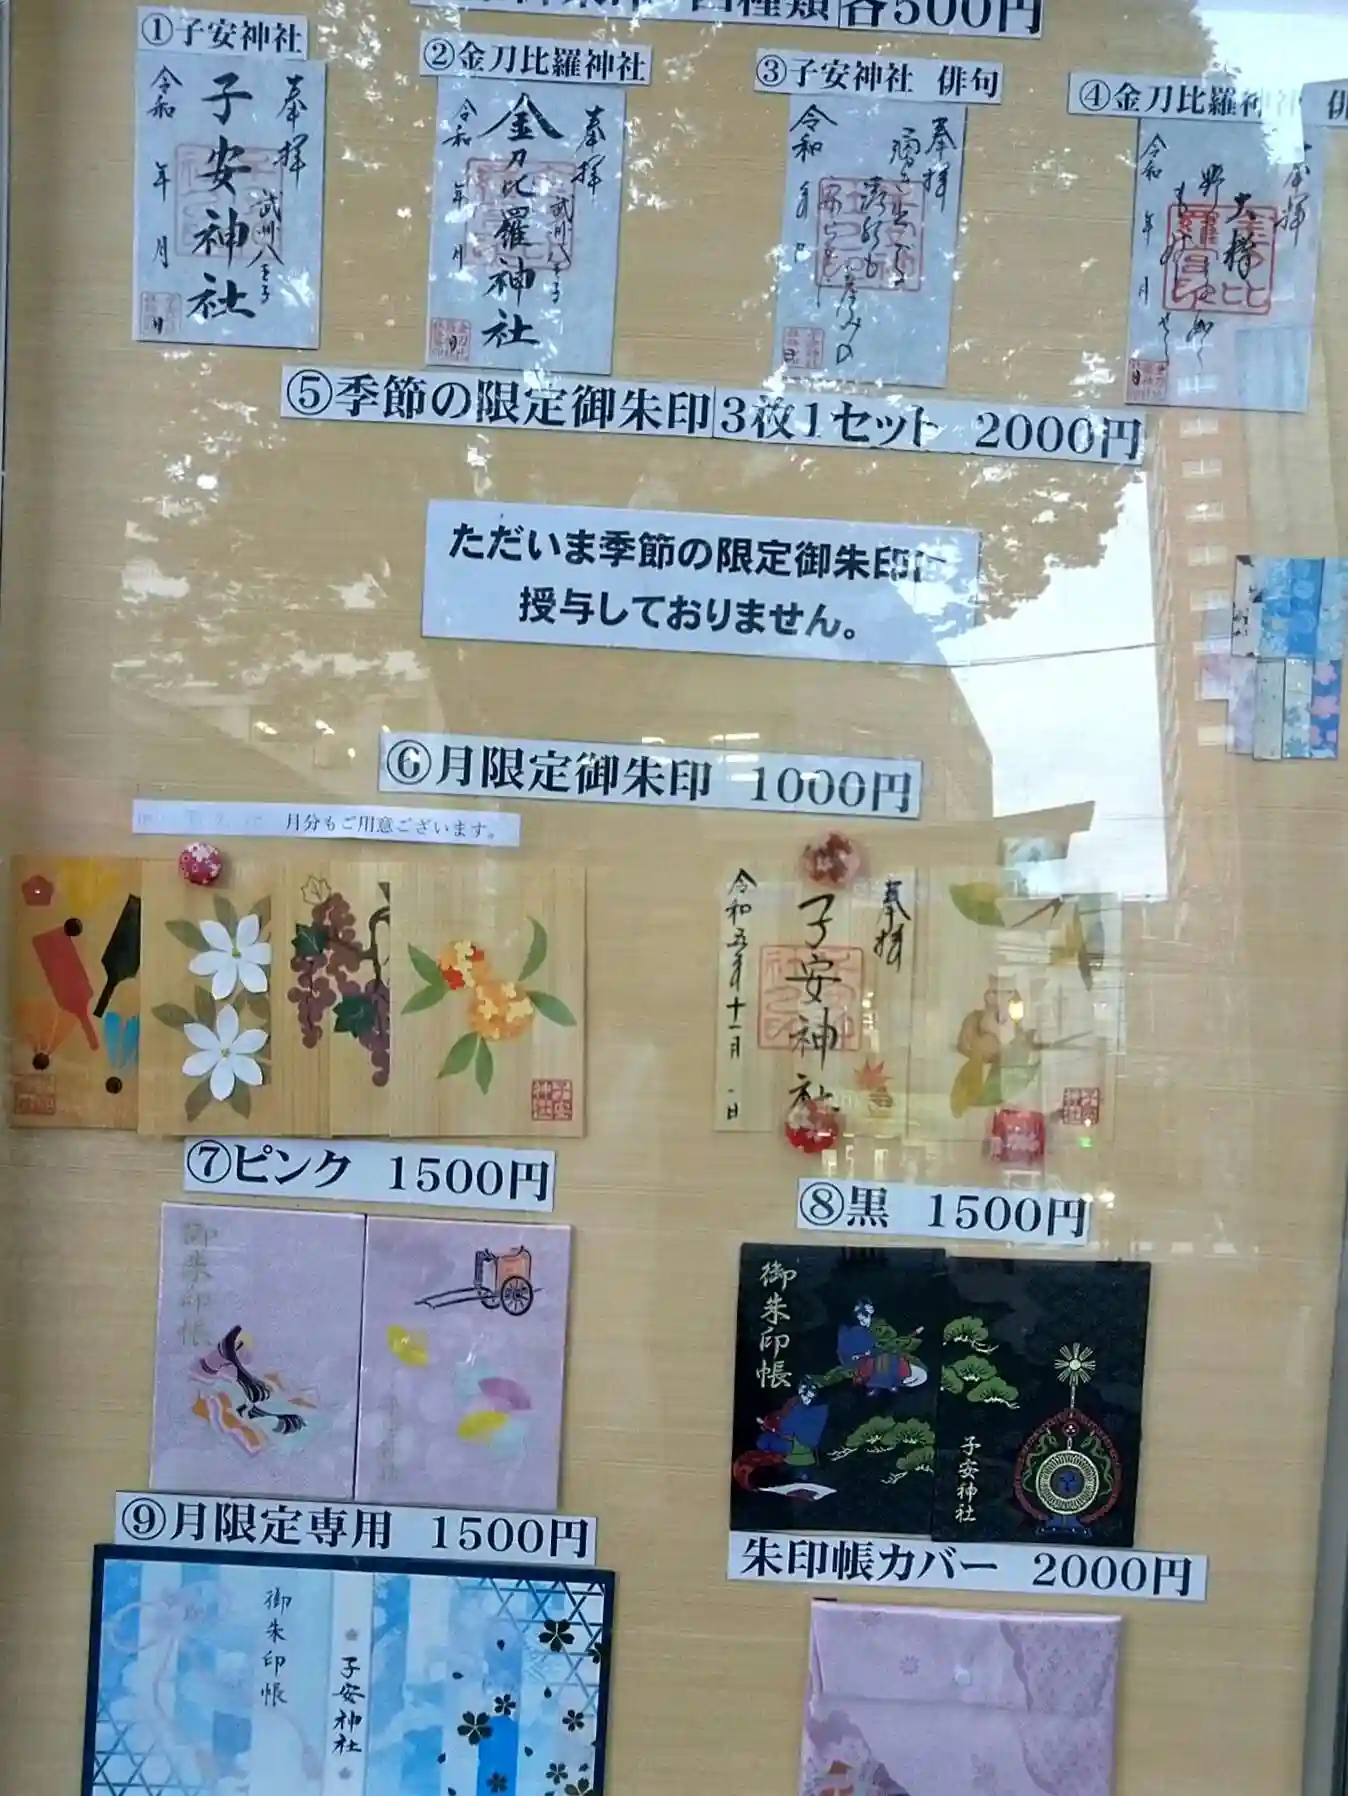 四種類 各500円
①子安神社
②金刀比羅神社
③子安神社 俳句
④金刀比羅神
奉拝
武州八王子
子安神社
令和 年 月 日
奉拝
武州八王子
金刀比羅神社
令和 年 月 日
奉拝
令和
奉拝
大欅
令和 年 月 日
⑤季節の限定御朱印 3枚1セット 2000円
ただいま季節の限定御朱印は
授与しておりません。
⑥月限定御朱印 1000円
月分もご用意ございます。
奉拝
子安神社
令和五年十一月一日
子安神社
子安神社
⑦ピンク 1500円
⑧黒 1500円
御朱印帳
御朱印帳
子安神社
⑨月限定専用 1500円
朱印帳カバー 2000円
御朱印帳
子安神社